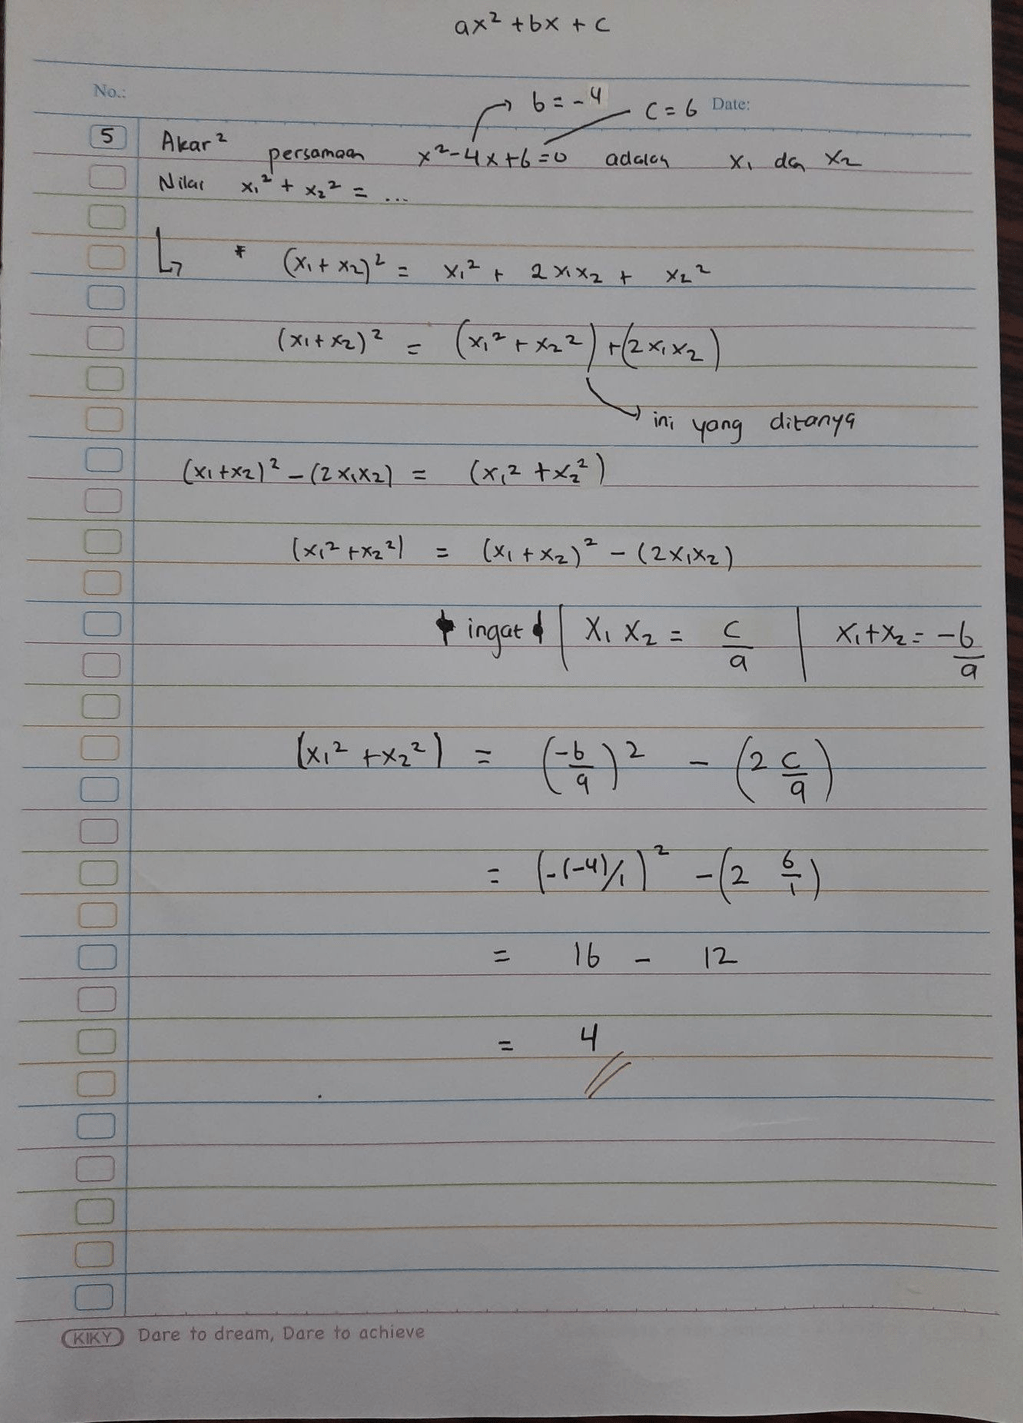 ax² + bx + c
No.:
b = -4
c = 6 Date:
5 Akar² persamaan x² - 4x + 6 = 0 adalah x₁ dan x₂
Nilai x₁² + x₂² = ...
* (x₁ + x₂)² = x₁² + 2x₁x₂ + x₂²
(x₁ + x₂)² = (x₁² + x₂²) + (2x₁x₂)
ini yang ditanya
(x₁ + x₂)² - (2x₁x₂) = (x₁² + x₂²)
(x₁² + x₂²) = (x₁ + x₂)² - (2x₁x₂)
ingat | x₁ x₂ = c/a | x₁ + x₂ = -b/a
(x₁² + x₂²) = (-b/a)² - (2 c/a)
= (-(-4)/1)² - (2 6/1)
= 16 - 12
= 4
KIKY Dare to dream, Dare to achieve